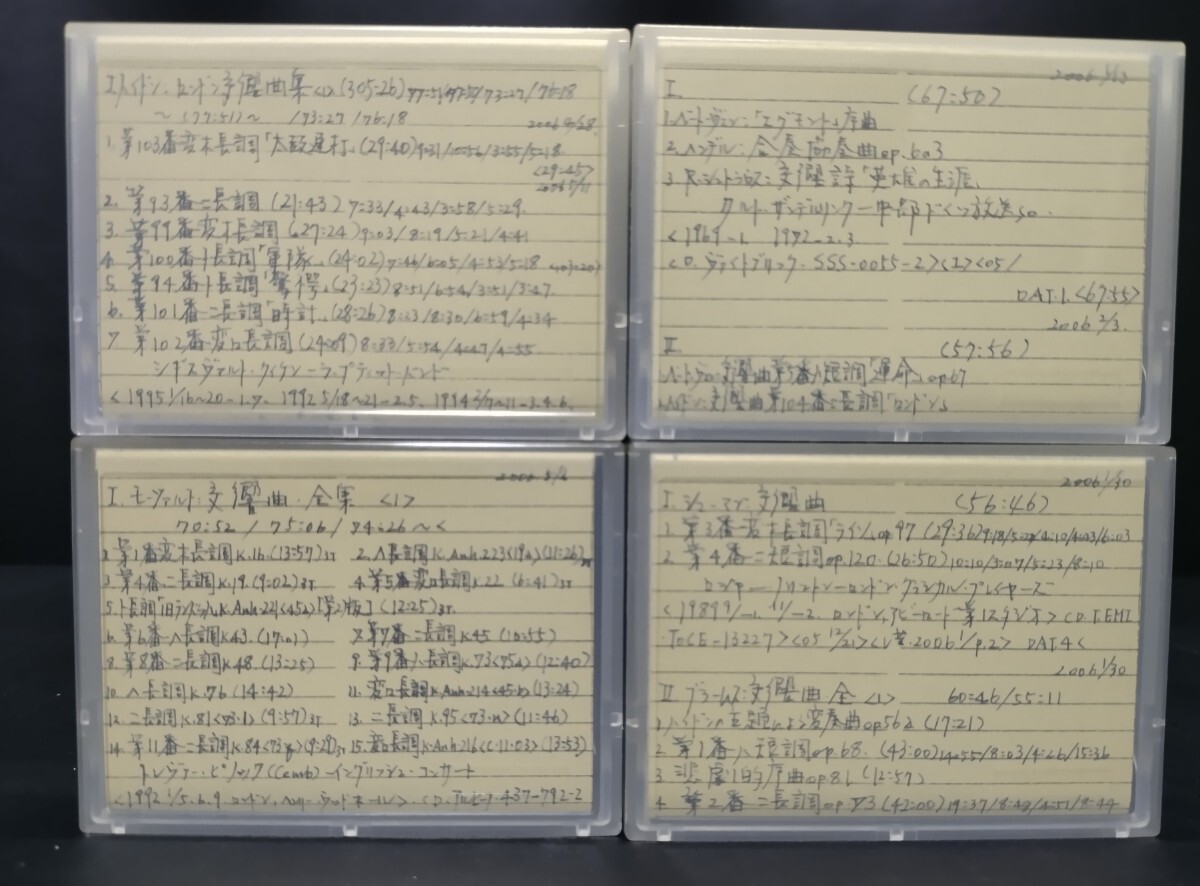 I.ハイドン.ロンドン交響曲集<1>(305:26)77:51/77:27/73:27/76:18
〜(77:51)〜 /73:27/76:18
1.第103番変ホ長調「太鼓連打」(29:40)
<29:45>
2.第93番ニ長調(21:43)7:33/4:43/3:58/5:29
3.第99番変ホ長調(27:24)9:03/8:19/5:21/4:41
4.第100番ト長調「軍隊」(24:02)7:46/6:05/4:53/5:18
5.第94番ト長調「驚愕」(23:23)8:51/6:54/3:51/3:47
6.第101番ニ長調「時計」(28:26)8:23/8:30/6:59/4:34
7.第102番変ロ長調(24:09)8:33/5:54/4:47/4:55
シギスヴァルト・クイケンーラ・プティット・バンド
<1995 1/16~20-1.7. 1992 5/18~21-2.5. 1994 2/7~11-3.4.6.
I. (67:50)
1.ベートヴェン:「エグモント」序曲
2.ヘンデル:合奏協奏曲op.6の3
3.R.シュトラウス:交響詩「英雄の生涯」
クルト・ザンデルリンクー中部ドイツ放送so.
<1969-1. 1972-2.3.
CD.ヴァイトブリック.SSS-0055-2><I><05/
DAT.1.<67:55>
2006 2/3.
II. (57:56)
1.ベートヴェン:交響曲第5番ハ短調「運命」op67
2.ハイドン:交響曲第104番ニ長調「ロンドン」
I.モーツァルト:交響曲.全集 <1>
70:52 / 75:06 / 74:26〜<
1.第1番変ホ長調K.16.(13:57)3T 2.ハ長調K.Anh.223<19a>(11:26)3T
3.第4番ニ長調K.19.(9:02)3T 4.第5番変ロ長調K.22 (6:41)3T
5.ト長調「旧ランバッハ」K.Anh.221<45a>「第2版」(12:25)3T.
6.第6番ヘ長調K43.(17:01) 7.第7番ニ長調K45(10:55)
8.第8番ニ長調K48.(13:25) 9.第9番ハ長調K.73<75a>(12:40)
10.ヘ長調K.76(14:42) 11.変ロ長調K.Anh.214<45b>(13:24)
12.ニ長調K.81<73l>(9:57)3T 13.ニ長調K.95<73n>(11:46)
14.第11番ニ長調K.84<73q>(9:29)3T 15.変ロ長調K.Anh.216<C-11.03>(13:53)
トレヴァー・ピノック(Cemb)ーイングリッシュ・コンサート
<1992 1/5.6.9.ロンドン,ヘンリー・ウッドホール>
437-792-2
2006 1/30
I.シューマン:交響曲 (56:46)
1.第3番変ホ長調「ライン」op97(29:36)9:18/5:27/4:10/4:03/6:03
2.第4番ニ短調op.120.(26:50)10:10/3:07/5:23/8:10
ロジャー・ノリントンーロンドン・クラシカル・プレイヤーズ
<1989 9/-1. 11/-2.ロンドン,アビーロード第1スタジオ>CD.T.EMI
.TOCE-13227><05 12/21><レ芸.2006 1/P.2> DAT4<
2006 1/30
II ブラームス:交響曲全<1> 60:46/55:11
1.ハイドンの主題による変奏曲op56a(17:21)
2.第1番ハ短調op.68.(43:00)14:55/8:03/4:26/15:36
3.悲劇的序曲op81(12:57)
4.第2番ニ長調op.73(42:00)19:37/8:49/4:51/8:44